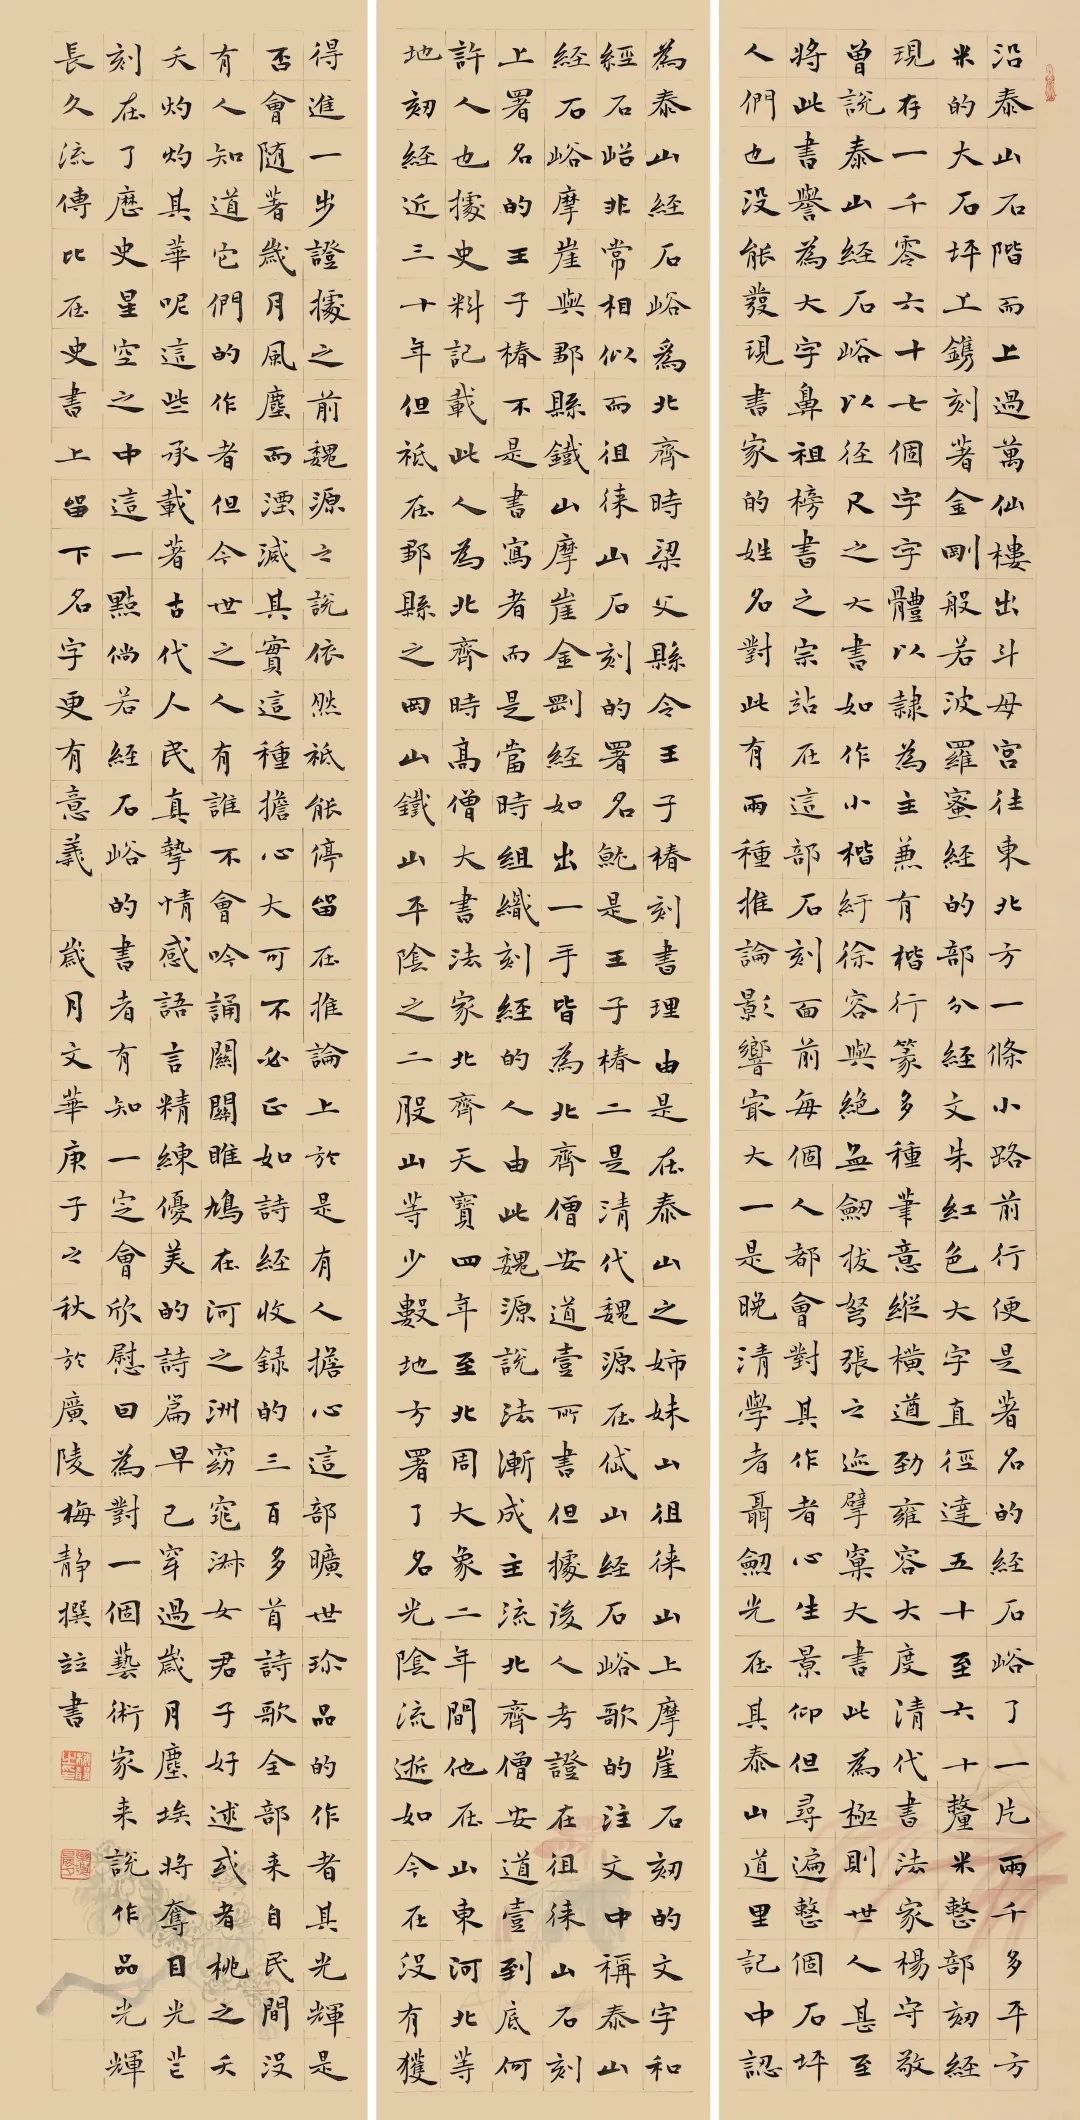 沿泰山石階而上過萬仙樓出斗母宮往東北方一條小路前行便是著名的経石峪了一片兩千多平方
米的大石坪上鐫刻著金剛般若波羅蜜経的部分経文朱紅色大字直徑達五十至六十釐米整部刻経
現存一千零六十七個字字體以隷為主兼有楷行篆多種筆意縱橫遒勁雍容大度清代書法家楊守敬
曾說泰山経石峪以径尺之大書如作小楷紆徐容與絕無劒拔弩張之迹擘窠大書此為極則世人甚至
將此書譽為大字鼻祖榜書之宗站在這部石刻面前每個人都會對其作者心生景仰但尋遍整個石坪
人們也沒能發現書家的姓名對此有兩種推論影響冣大一是晚清學者聶劒光在其泰山道里記中認
為泰山経石峪為北齊時梁父縣令王子椿刻書理由是在泰山之姊妹山徂徠山上摩崖石刻的文字和
經石峪非常相似而徂徠山石刻的署名就是王子椿二是清代魏源在岱山経石峪歌的注文中稱泰山
経石峪摩崖與鄒縣鐵山摩崖金剛経如出一手皆為北齊僧安道壹所書但據後人考證在徂徠山石刻
上署名的王子椿不是書寫者而是當時組織刻経的人由此魏源說法漸成主流北齊僧安道壹到底何
許人也據史料記載此人為北齊時高僧大書法家北齊天寶四年至北周大象二年間他在山東河北等
地刻経近三十年但祗在鄒縣之岡山鐵山平陰之二股山等少數地方署了名光陰流逝如今在沒有獲
得進一步證據之前魏源之說依然祗能停留在推論上於是有人擔心這部曠世珍品的作者其光輝是
否會隨著歲月風塵而湮滅其實這種擔心大可不必正如詩経收録的三百多首詩歌全部来自民間沒
有人知道它們的作者但今世之人有誰不會吟誦關關雎鳩在河之洲窈窕淑女君子好逑或者桃之夭
夭灼灼其華呢這些承載著古代人民真摯情感語言精練優美的詩篇早已穿過歲月塵埃將奪目光芒
刻在了歷史星空之中這一點倘若経石峪的書者有知一定會欣慰曰為對一個藝術家来說作品光輝
長久流傳比在史書上留下名字更有意義 歲月文華庚子之秋於廣陵梅静撰竝書